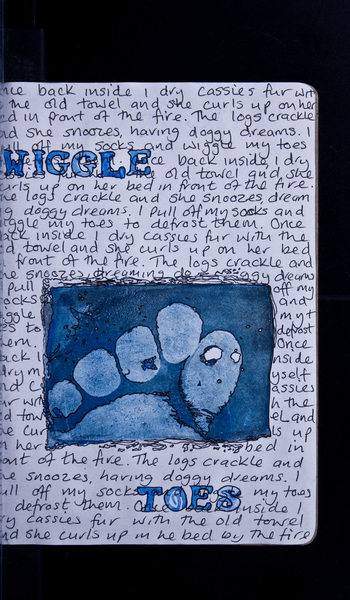 once back inside I dry cassies fur with
the old towel and she curls up on her
bed in front of the fire. The logs crackle
and she snoozes, having doggy dreams. I
off my socks and wiggle my toes
WIGGLE
ce back inside I dry
old towel and she
curls up on her bed in front of the fire.
the logs crackle and she snoozes, dream
g doggy dreams. I Pull off my socks and
wiggle my toes to defrost them. Once
back inside I dry cassies fur with the
towel and she curls up on her bed
front of the fire. The logs crackle and
he snoozes, dreaming doggy dreams
Pull off my
socks and
ggle my t
es to defrost
hem. Once
back i nside
dry m yself
nd c assies
ur wit h the
d tow el and
he cur ls up
n her bed in
ont of the fire. The logs crackle and
he snoozes, having doggy dreams. I
ull off my sock my toes
TOES
defrost them. Once inside I
ry cassies fur with the old towel
nd she curls up in he bed by the fire